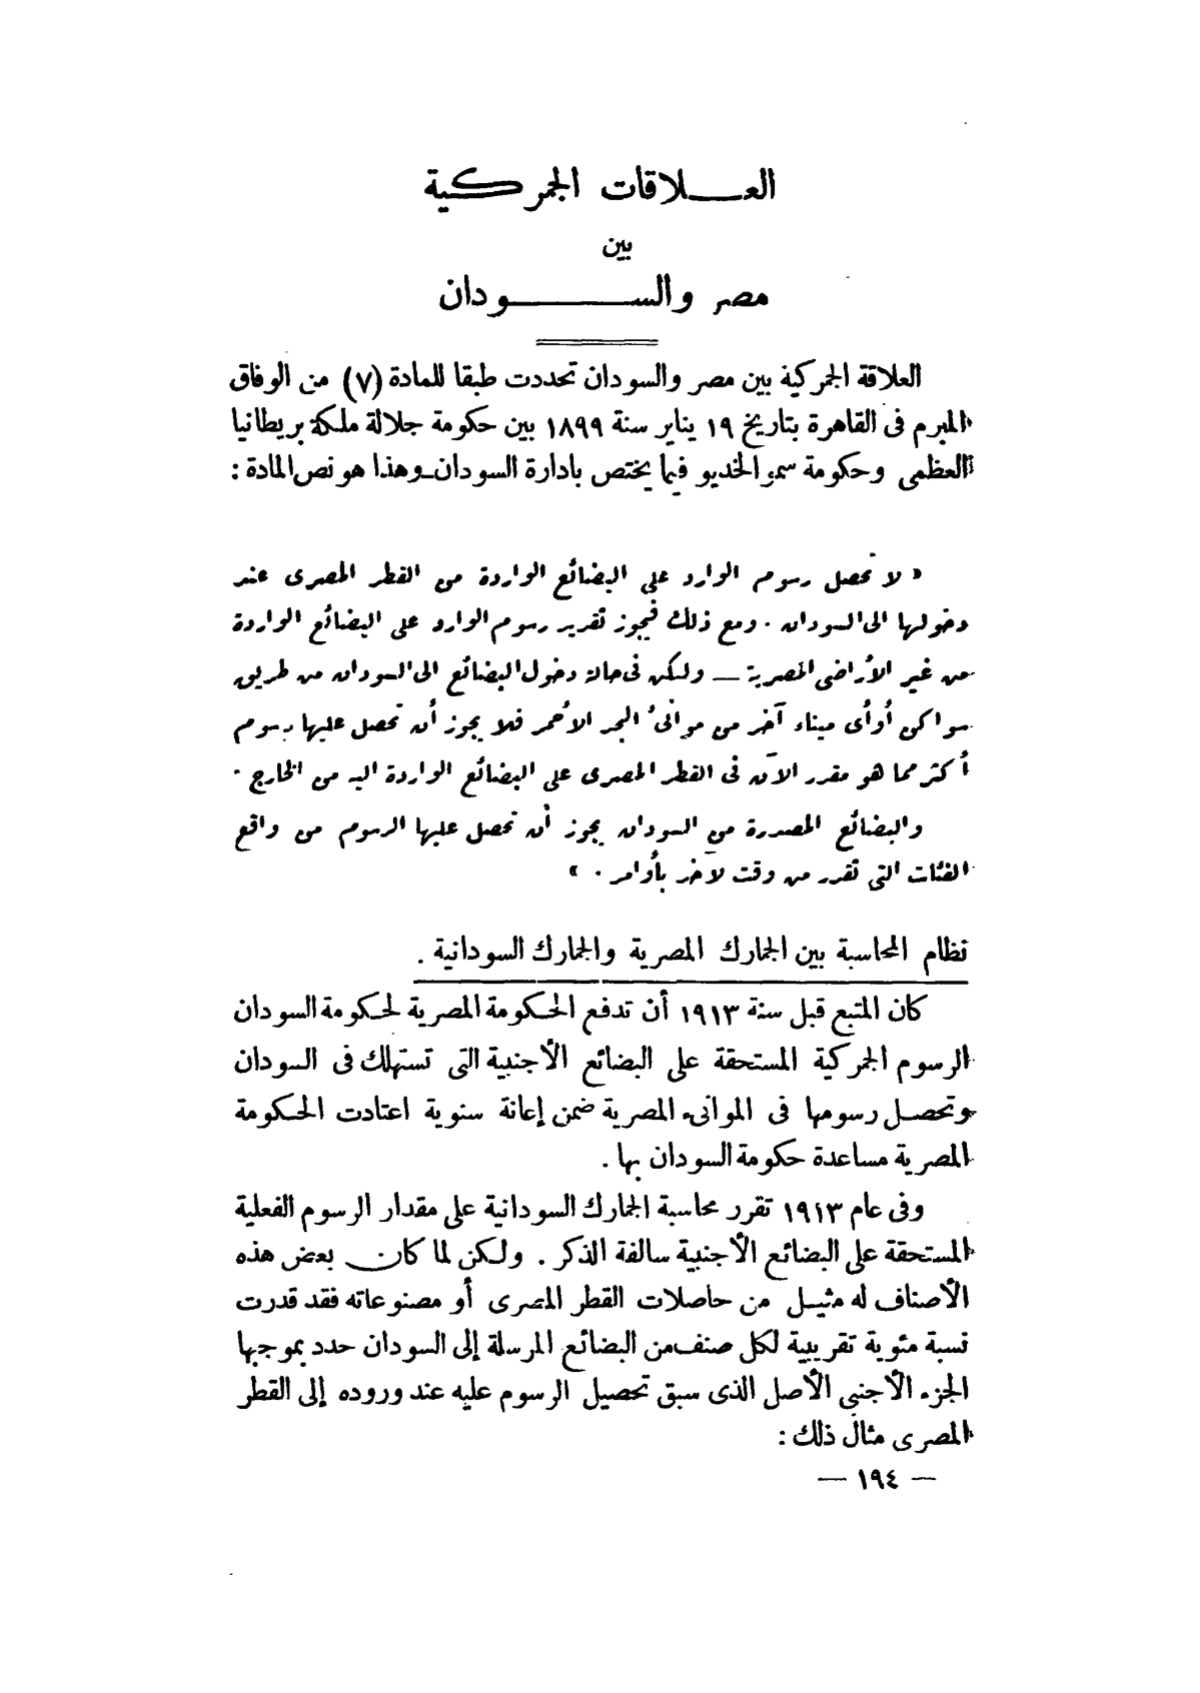 العلاقات الجمركية
بين
مصر والسودان
العلاقة الجمركية بين مصر والسودان تحددت طبقا للمادة (٧) من الوفاق
المبرم فى القاهرة بتاريخ ١٩ يناير سنة ١٨٩٩ بين حكومة جلالة ملكة بريطانيا
العظمى وحكومة سمو الخديو فيما يختص بادارة السودان_وهذا هو نص المادة :
« لا تحصل رسوم الوارد على البضائع الواردة من القطر المصرى عند
دخولها الى السودان . ومع ذلك فيجوز تقرير رسوم الوارد على البضائع الواردة
من غير الأراضى المصرية — ولكن فى حالة دخول البضائع الى السودان من طريق
سواكن أو أى ميناء آخر من موانىء البحر الأحمر فلا يجوز أن تحصل عليها رسوم
أكثر مما هو مقرر الآن فى القطر المصرى على البضائع الواردة اليه من الخارج .
والبضائع المصدرة من السودان يجوز أن تحصل عليها الرسوم من واقع
الفئات التى تقرر من وقت لآخر بأوامر . »
نظام المحاسبة بين الجمارك المصرية والجمارك السودانية .
كان المتبع قبل سنة ١٩١٣ أن تدفع الحكومة المصرية لحكومة السودان
الرسوم الجمركية المستحقة على البضائع الأجنبية التى تستهلك فى السودان
وتحصل رسومها فى الموانىء المصرية ضمن إعانة سنوية اعتادت الحكومة
المصرية مساعدة حكومة السودان بها .
وفى عام ١٩١٣ تقرر محاسبة الجمارك السودانية على مقدار الرسوم الفعلية
المستحقة على البضائع الأجنبية سالفة الذكر . ولكن لما كان بعض هذه
الأصناف له مثيل من حاصلات القطر المصرى أو مصنوعاته فقد قدرت
نسبة مئوية تقريبية لكل صنف من البضائع المرسلة إلى السودان حدد بموجبها
الجزء الأجنبى الأصل الذى سبق تحصيل الرسوم عليه عند وروده إلى القطر
المصرى مثال ذلك :
— ١٩٤ —